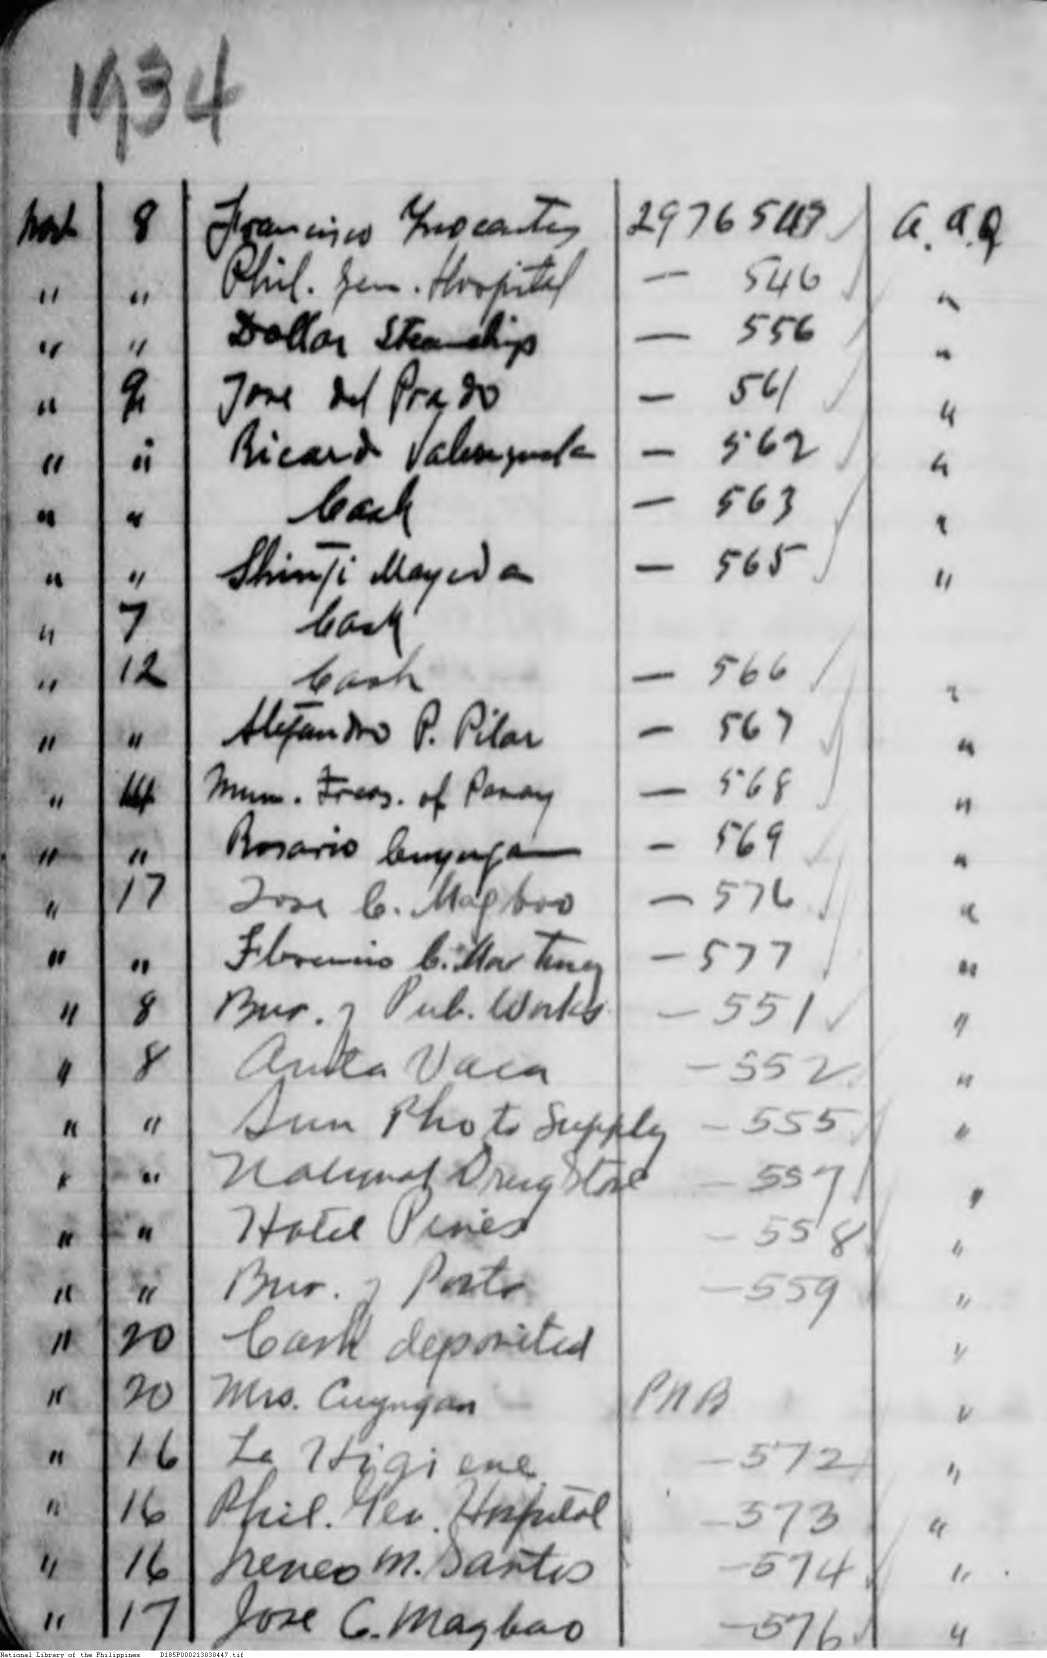 1934
8 Francisco 29765 a. a. Q
" " Phil. Gen. Hospital — 546 "
" " Dollar Steamships — 556 "
" 9 Jose del Prado — 561 "
" " Ricardo Valenzuela — 562 "
" " Cash — 563 "
" " Shinji Mayeda — 565 "
" 7 Cash
" 12 Cash — 566 "
" " Alejandro P. Pilar — 567 "
" 14 Mun. Treas. of Panay — 568 "
" " Rosario Cuyugan — 569 "
" 17 Jose C. Magboo — 576 "
" " Florencio C. Martinez — 577 "
" 8 Bur. of Pub. Works — 551 "
" 8 Anita Vaca — 552 "
" " Sun Photo Supply — 555 "
" " National Drug Store — 557 "
" " Hotel Pines — 558 "
" " Bur. of Posts — 559 "
" 20 Cash deposited "
" 20 Mrs. Cuyugan PNB "
" 16 La Higiene — 572 "
" 16 Phil. Gen. Hospital — 573 "
" 16 Ireneo M. Santos — 574 "
" 17 Jose C. Magbao — 576 "
National Library of the Philippines D185P000213838447.tif